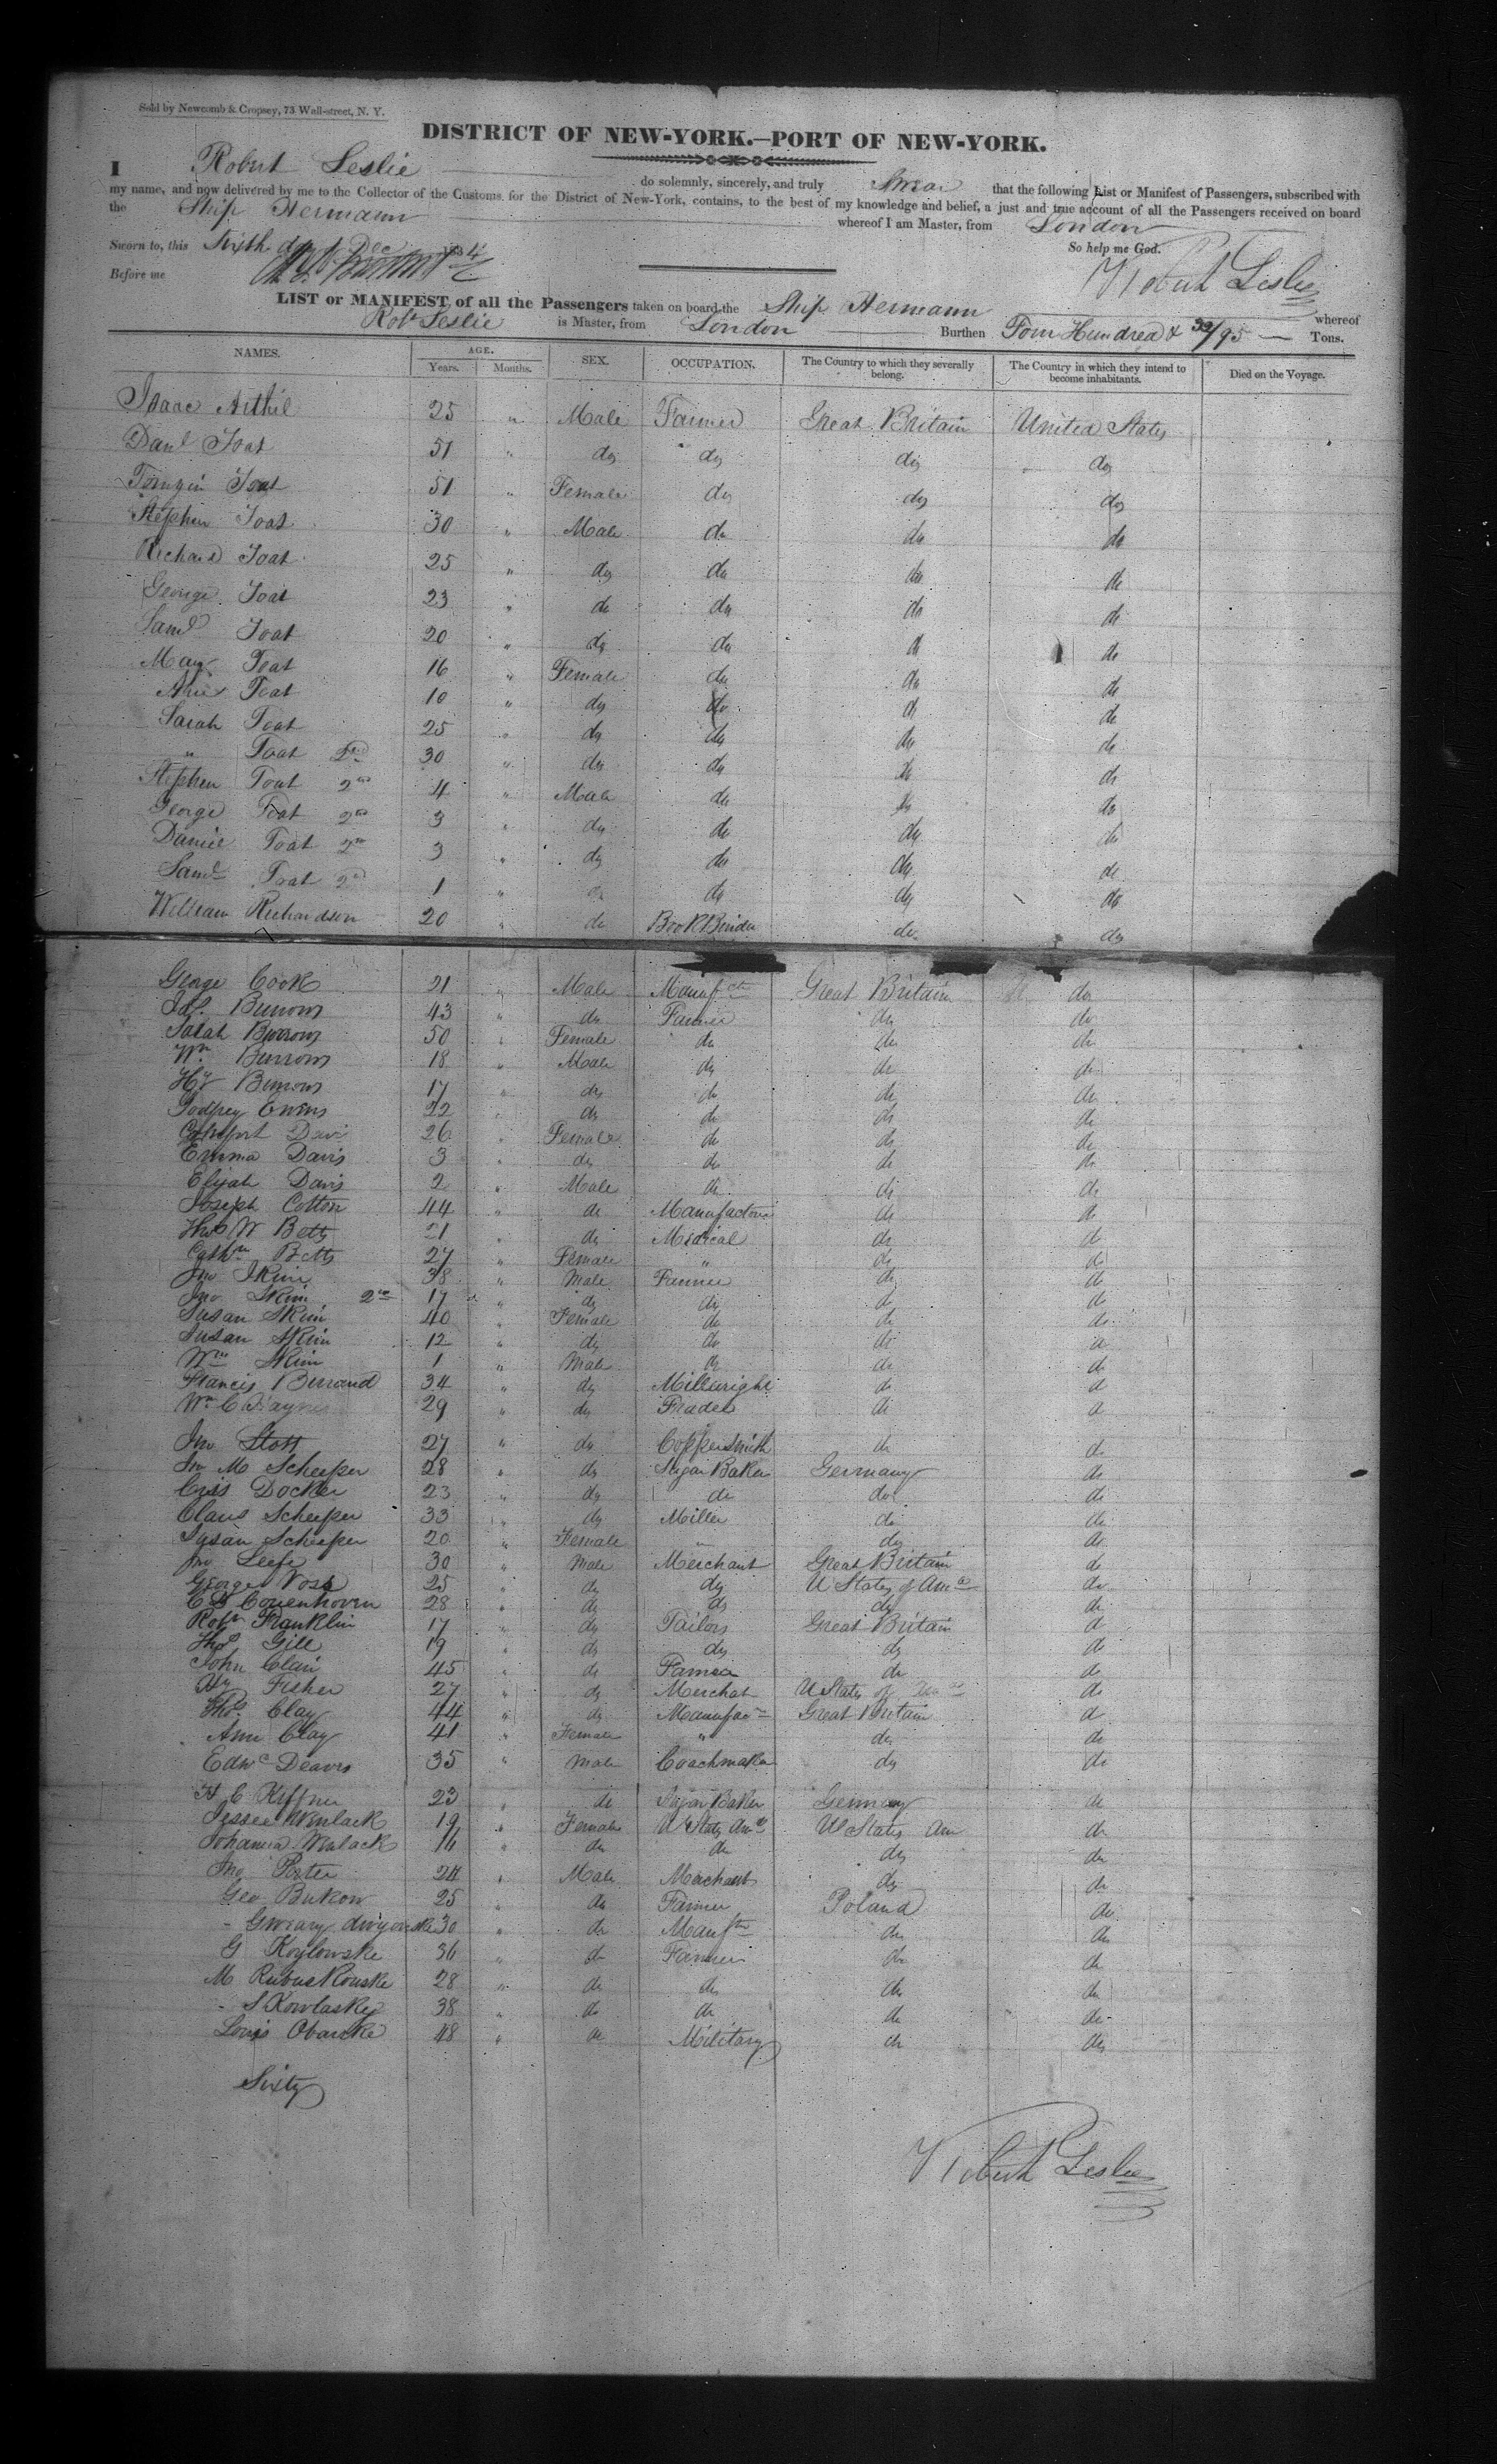 Sold by Newcomb & Cropsey, 73 Wall-street, N. Y.
DISTRICT OF NEW-YORK.—PORT OF NEW-YORK.
I Robert Leslie do solemnly, sincerely, and truly Swear that the following List or Manifest of Passengers, subscribed with
my name, and now delivered by me to the Collector of the Customs for the District of New-York, contains, to the best of my knowledge and belief, a just and true account of all the Passengers received on board
the Ship Hermann whereof I am Master, from London
Sworn to, this Sixth day Dec 1834 So help me God.
Before me Robert Leslie
LIST or MANIFEST of all the Passengers taken on board the Ship Hermann whereof
Robt Leslie is Master, from London Burthen Four Hundred & /95 Tons.
NAMES. AGE. Years. Months. SEX. OCCUPATION. The Country to which they severally belong. The Country in which they intend to become inhabitants. Died on the Voyage.
Isaac 25 " Male Farmer Great Britain United States
Danl Toat 51 " do do do do
Toat 51 " Female do do do
Stephen Toat 30 " Male do do do
Richard Toat 25 " do do do do
George Toat 23 " do do do do
Saml Toat 20 " do do do do
Mary Toat 16 " Female do do do
Toat 10 " do do do do
Sarah Toat 25 " do do do do
" Toat 2nd 30 " do do do do
Stephen Toat 2nd 4 " Male do do do
George Toat 2nd 3 " do do do do
Daniel Toat 2nd 3 " do do do do
Saml Toat 2d 1 " do do do do
William Richardson 20 " do Book Binder do do
George Cook 21 " Male Manufctr Great Britain do
Burrows 43 " do Farmer do do
Sarah Burrows 50 " Female do do do
Wm Burrows 18 " Male do do do
Hy Burrows 17 " do do do do
Godfrey Owens 22 " do do do do
Comfort Davis 26 " Female do do do
Emma Davis 3 " do do do do
Elijah Davis 2 " Male do do do
Joseph Cotton 44 " do Manufacturer do do
Thos W Betts 21 " do Medical do do
Cathn Betts 27 " Female " do do
Jno Skim 38 " Male Farmer do do
Jno Skim 2nd 17 " do do do do
Susan Skim 40 " Female do do do
Susan Skim 12 " do do do do
Wm Skim 1 " Male do do do
Francis Burrand 34 " do Millwright do do
Wm C 29 " do Trader do do
Jno Stott 27 " do Coppersmith do do
Jno M Scheeper 28 " do Sugar Baker Germany do
Cris Docker 23 " do do do do
Claus Scheeper 33 " do Miller do do
Susan Scheeper 20 " Female " do do
Jno Leefe 30 " Male Merchant Great Britain do
George Voss 25 " do do U States of Ama do
Couenhoven 28 " do do do do
Robt Franklin 17 " do Tailors Great Britain do
Thos Gill 19 " do do do do
John Clair 45 " do Farmer do do
Hy Fisher 27 " do Merchat U States of do
Thos Clay 44 " do Manufacr Great Britain do
Ann Clay 41 " Female " do do
Edwd Deavis 35 " Male Coachmaker do do
H C Kuffner 23 " do Sugar Baker Germany do
Jessee Wenlack 19 " Female U States Ama U States Am do
Johanna Wenlack 16 " do do do do
Jno Porter 24 " Male Merchant do do
Geo Bukow 25 " do Farmer Poland do
30 " do Manftr do do
G Koylowske 36 " do Farmer do do
M 28 " do do do do
S Kowlaskey 38 " do do do do
Louis 48 " do Military do do
Sixty
Robert Leslie